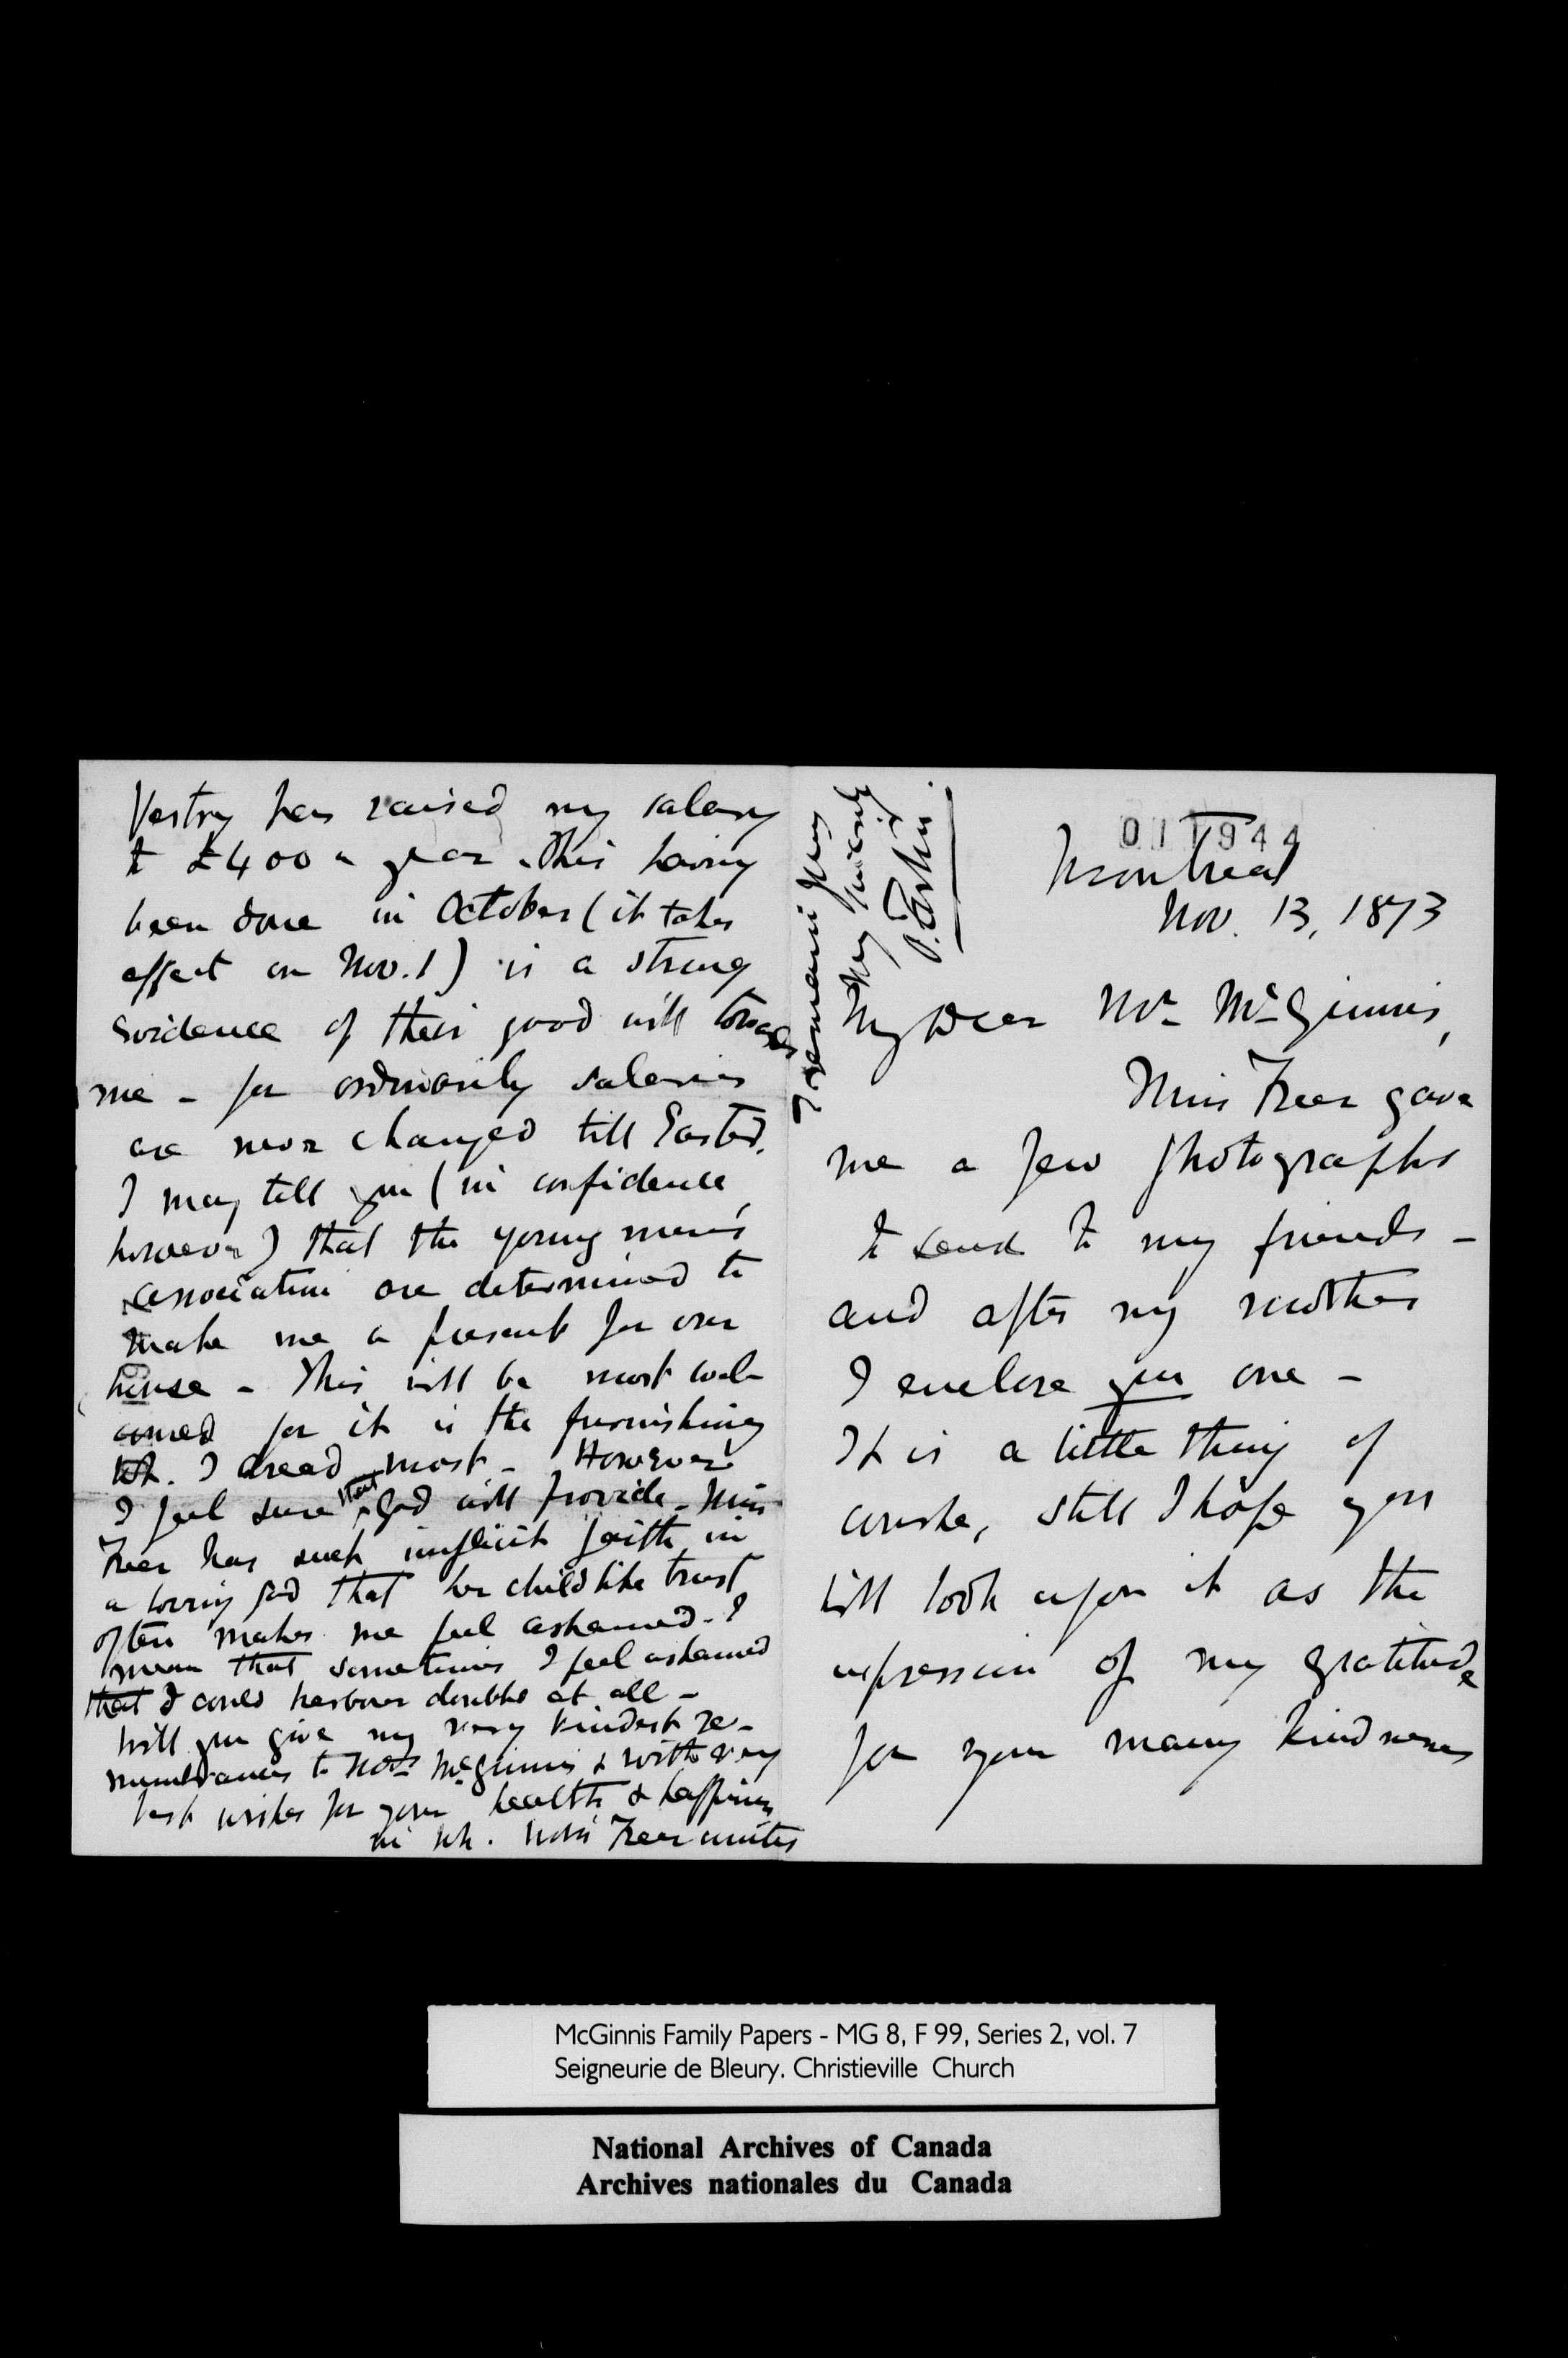 011944
Montreal
Nov. 13, 1873
My Dear Mr McGinnis,
Miss Freer gave
me a few photographs
to send to my friends -
and after my mother
I enclose you one -
It is a little thing of
course, still I hope you
will look upon it as the
expression of my gratitude
for your many kindnesses
Vestry has raised my salary
to £400 a year. This having
been done in October (it takes
effect on Nov. 1) is a strong
evidence of their good will towards
me - for ordinarily salaries
are never changed till Easter.
I may tell you (in confidence,
however) that the young men's
association are determined to
make me a present for our
house - This will be most wel-
comed for it is the furnishing
I dread most - However
I feel sure that God will provide - Miss
Freer has such implicit faith in
a loving God that her childlike trust
often makes me feel ashamed - I
mean that sometimes I feel ashamed
that I could harbour doubts at all -
Will you give my very kindest re-
membrances to Mrs McGinnis & with very
best wishes for your health & happiness
in wh. Miss Freer unites
I remain yours
very sincerely
McGinnis Family Papers - MG 8, F 99, Series 2, vol. 7
Seigneurie de Bleury. Christieville Church
National Archives of Canada
Archives nationales du Canada